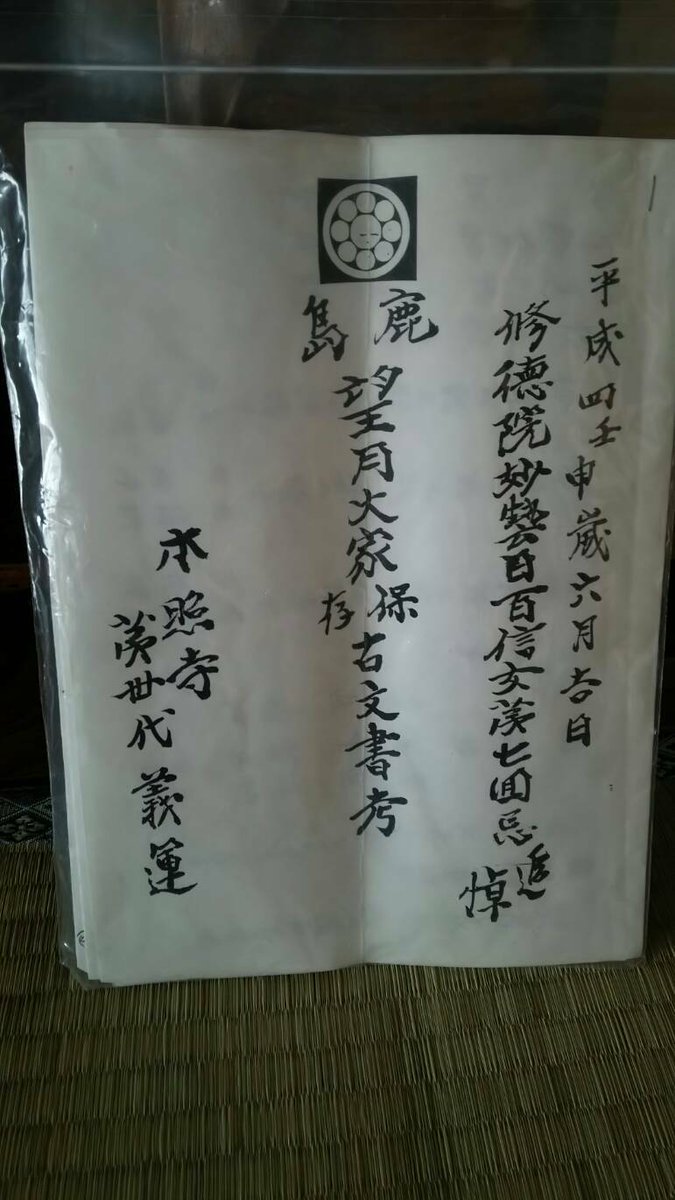 平成四壬申歳六月吉日
修徳院妙藝日百信女第七回忌追悼
鹿島
望月大家保存古文書考
本照寺
第世代 義運